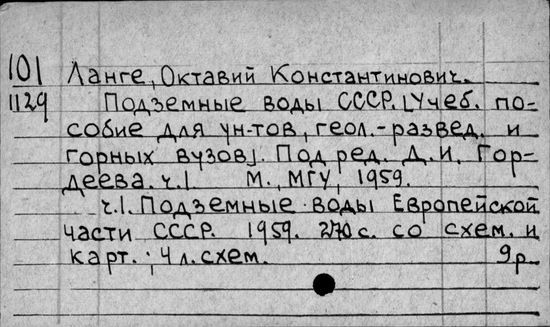 101 Ланге, Октавий Константинович.
1129 Подземные воды СССР. [Учеб. по-
собие для ун-тов, геол.-развед. и
горных вузов]. Под ред. Д.И. Гор-
деева. ч.1. М., МГУ, 1959.
ч.1. Подземные воды Европейской
части СССР. 1959. 270 с. со схем. и
карт.; 4 л. схем. 9р.